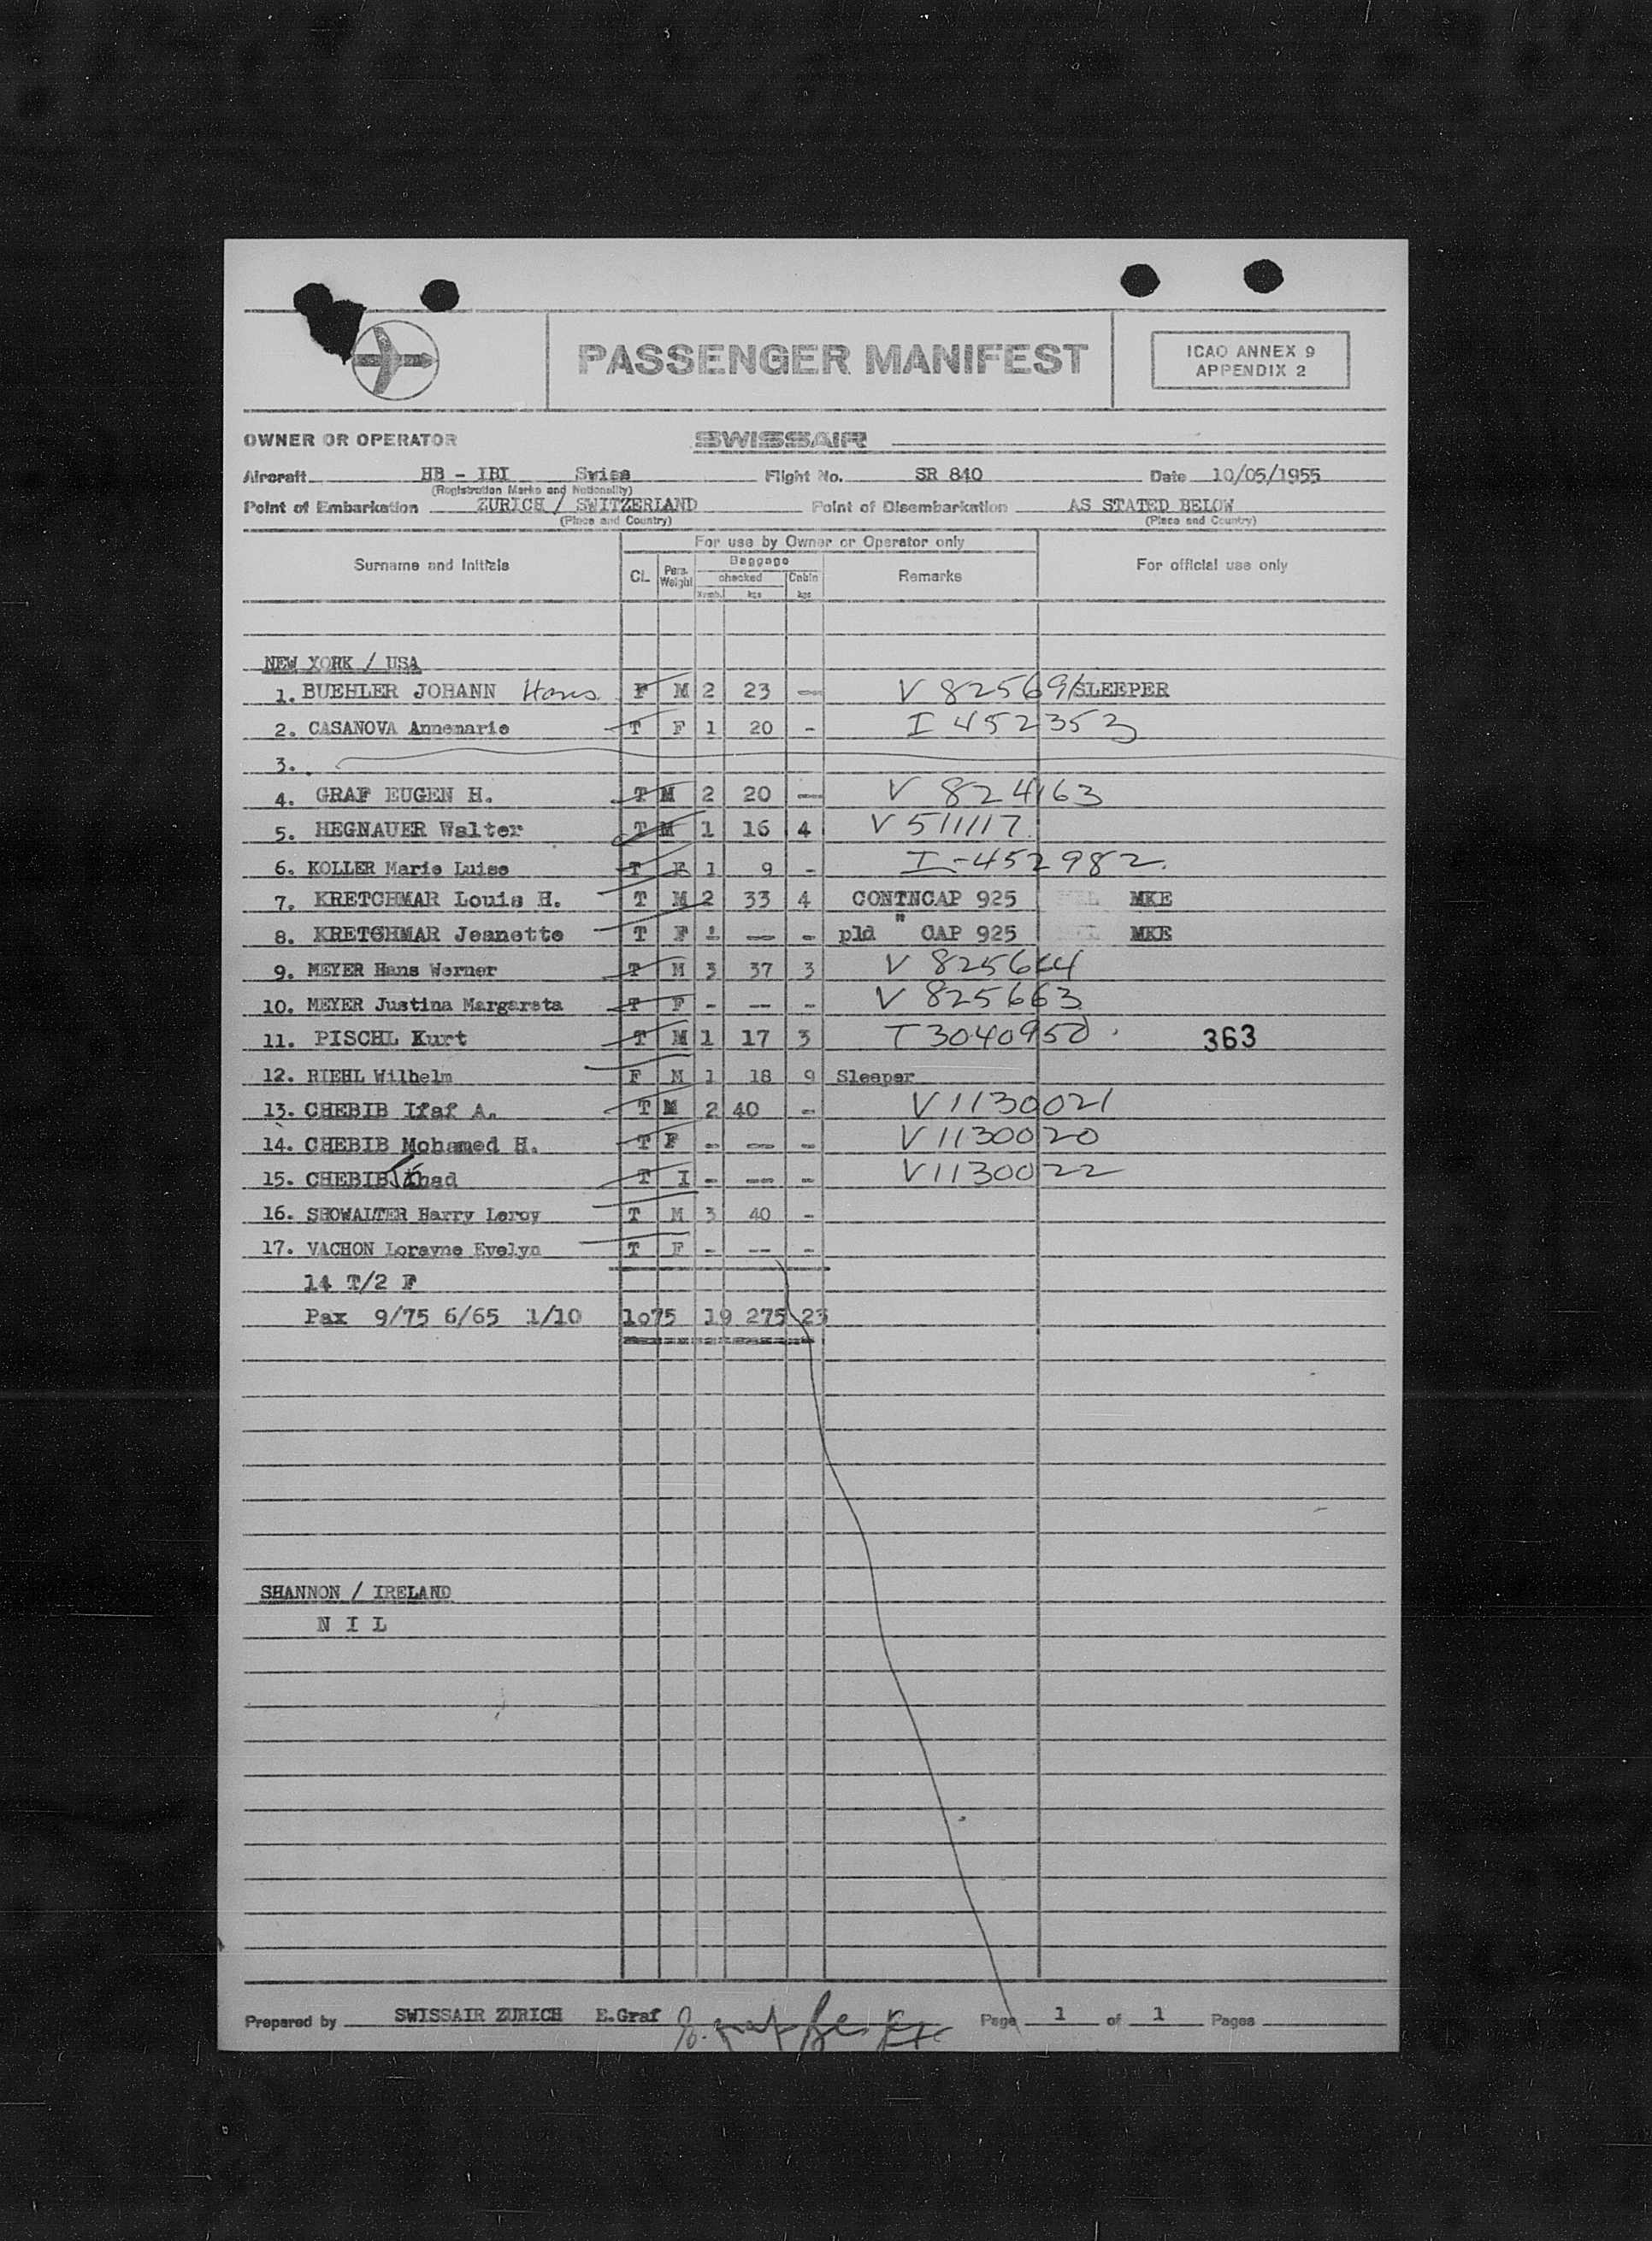 PASSENGER MANIFEST
ICAO ANNEX 9
APPENDIX 2
OWNER OR OPERATOR SWISSAIR
Aircraft HB - IBI Swiss Flight No. SR 840 Date 10/05/1955
(Registration Marks and Nationality)
Point of Embarkation ZURICH / SWITZERLAND Point of Disembarkation AS STATED BELOW
(Place and Country) (Place and Country)
For use by Owner or Operator only
Surname and Initials CL. Pers. Weight Baggage Remarks For official use only
checked Cabin
Numb. kgs kgs
NEW YORK / USA
1. BUEHLER JOHANN Hans F M 2 23 — V 82569/SLEEPER
2. CASANOVA Annemarie T F 1 20 - I 452353
3.
4. GRAF EUGEN H. T M 2 20 — V 824163
5. HEGNAUER Walter T M 1 16 4 V 511117
6. KOLLER Marie Luise T F 1 9 - I-452982.
7. KRETCHMAR Louis H. T M 2 33 4 CONTNCAP 925 MKE
8. KRETCHMAR Jeanette T F - -- - pld " CAP 925 MKE
9. MEYER Hans Werner T M 3 37 3 V 825664
10. MEYER Justina Margareta T F - -- - V 825663
11. PISCHL Kurt T M 1 17 3 T 3040950 363
12. RIEHL Wilhelm F M 1 18 9 Sleeper
13. CHEBIB Ifaf A. T M 2 40 - V1130021
14. CHEBIB Mohamed H. T F - -- - V1130020
15. CHEBIB Jihad T I - -- - V1130022
16. SHOWALTER Harry Leroy T M 3 40 -
17. VACHON Lorayne Evelyn T F - -- -
14 T/2 F
Pax 9/75 6/65 1/10 1o75 19 275 23
SHANNON / IRELAND
N I L
Prepared by SWISSAIR ZURICH E.Graf Page 1 of 1 Pages